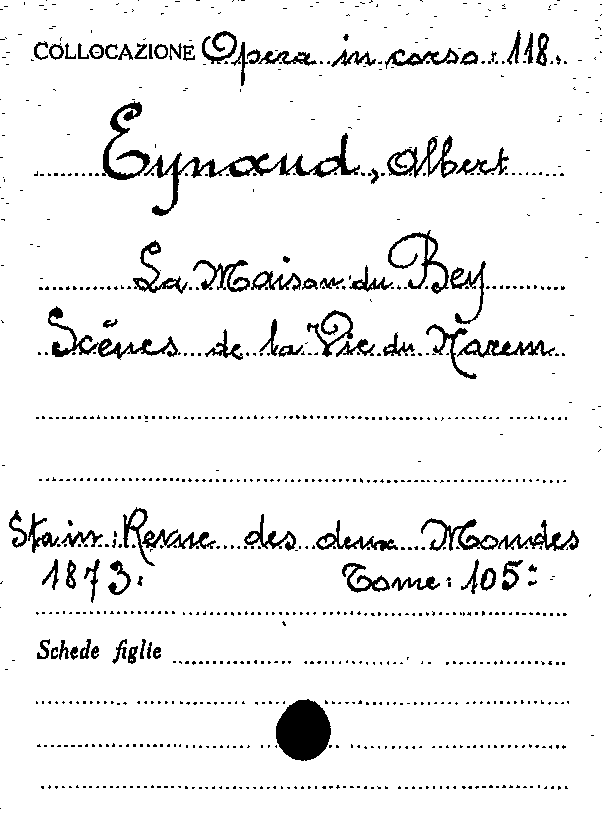 COLLOCAZIONE Opera in corso: 118.
Eynaud, Albert
La Maison du Bey
Scènes de la Vie du Harem
Sta in: Revue des deux Mondes
1873. Tome: 105:
Schede figlie